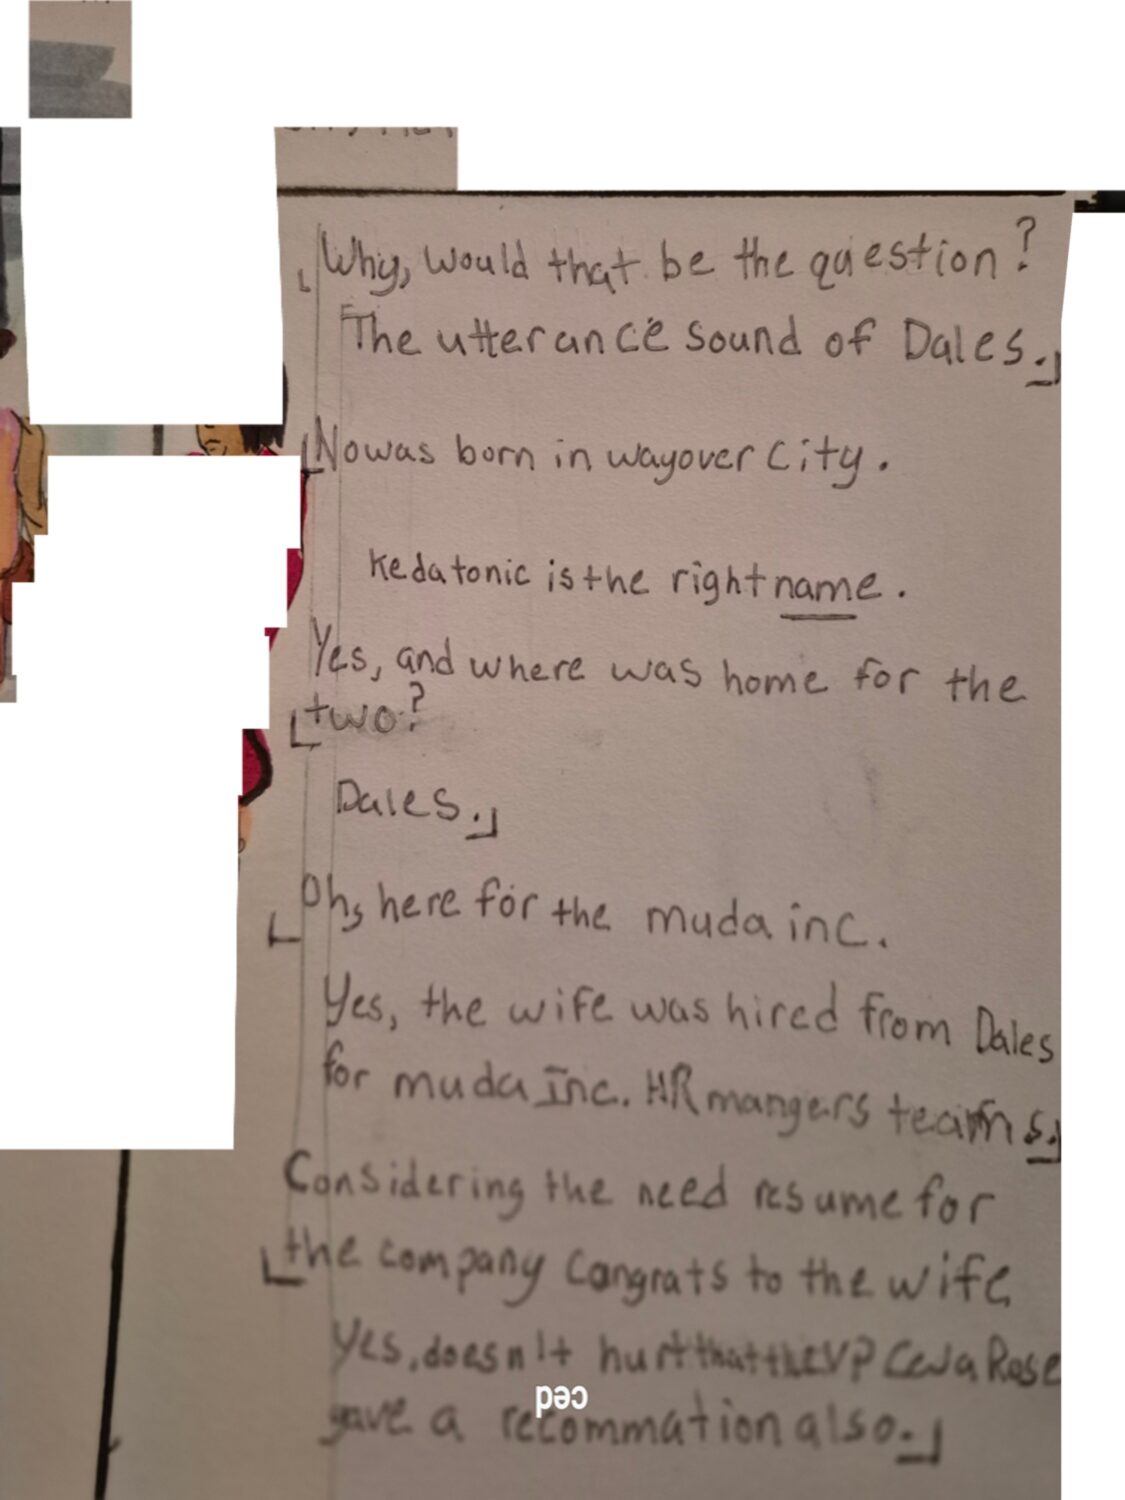 Why, would that be the question?
The utterance sound of Dales.
Nowas born in wayover City.
Kedatonic is the right name.
Yes, and where was home for the
two?
Dales.
Oh, here for the muda inc.
Yes, the wife was hired from Dales
for muda Inc. HR mangers teams.
Considering the need resume for
the company Congrats to the wife
Yes, doesn't hurt that the VP Rose
ced
gave a recommation also.